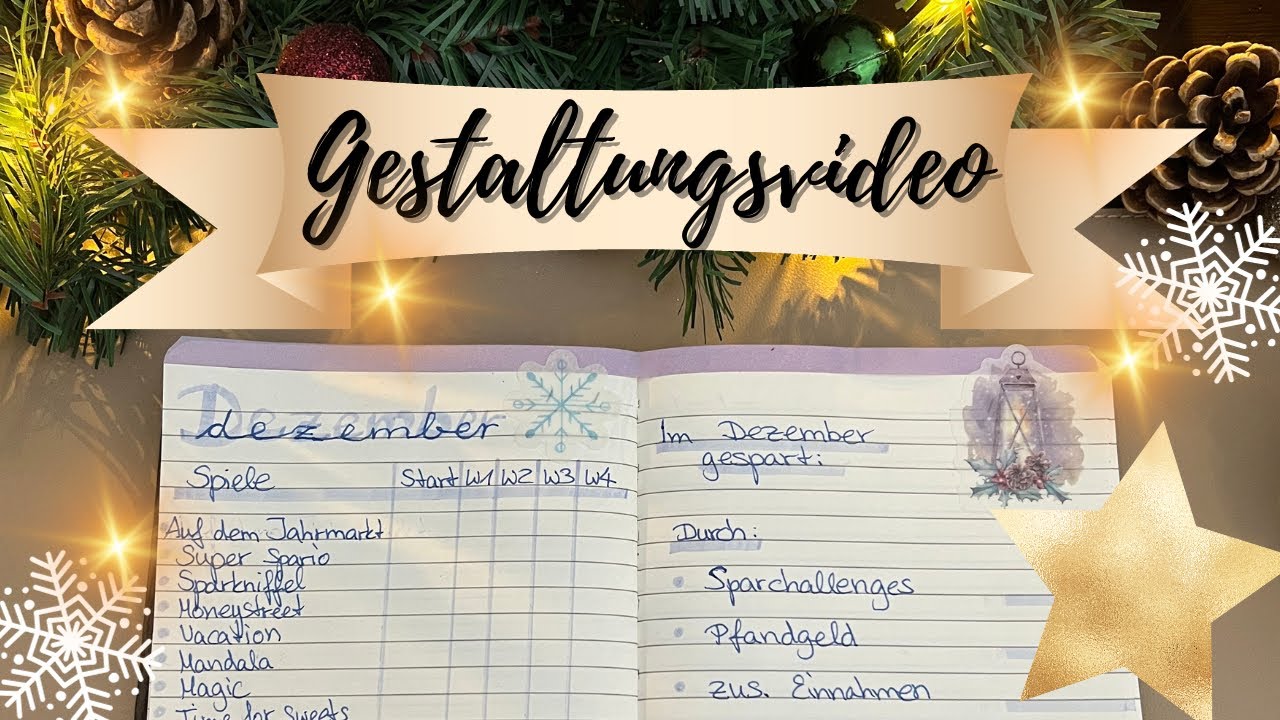 Gestaltungsvideo
Dezember
dezember
Spiele Start W1 W2 W3 W4
Auf dem Jahrmarkt
Super Spario
Sparkniffel
Moneystreet
Vacation
Mandala
Magic
Time for Sweets
Im Dezember
gespart:
Durch:
• Sparchallenges
• Pfandgeld
• zus. Einnahmen